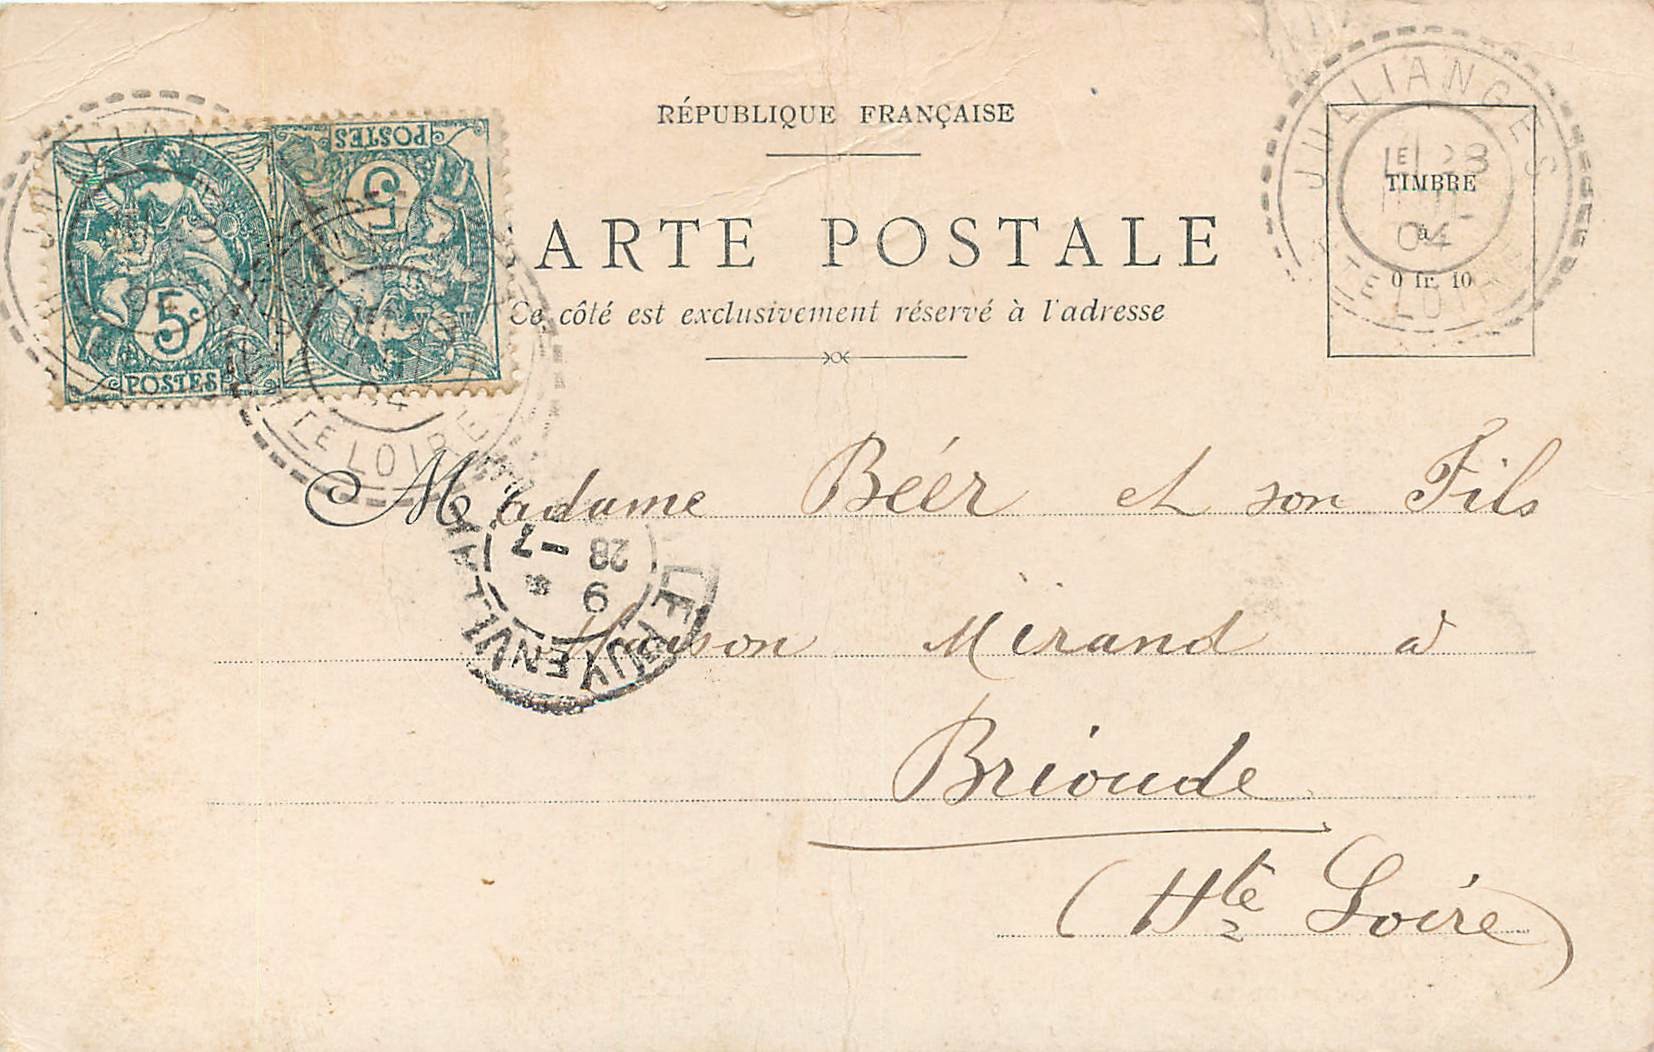 RÉPUBLIQUE FRANÇAISE
ARTE POSTALE
Ce côté est exclusivement réservé à l'adresse
TIMBRE
à
0 fr. 10
JULLIANGES
LE 28
04
HTE LOIRE
5c
POSTES
POSTES
5
04
TE LOIRE
LE PUY EN VELAY
9
28 -7
Madame Béér et son Fils
Maison Mirand à
Brioude
(Hte Loire)